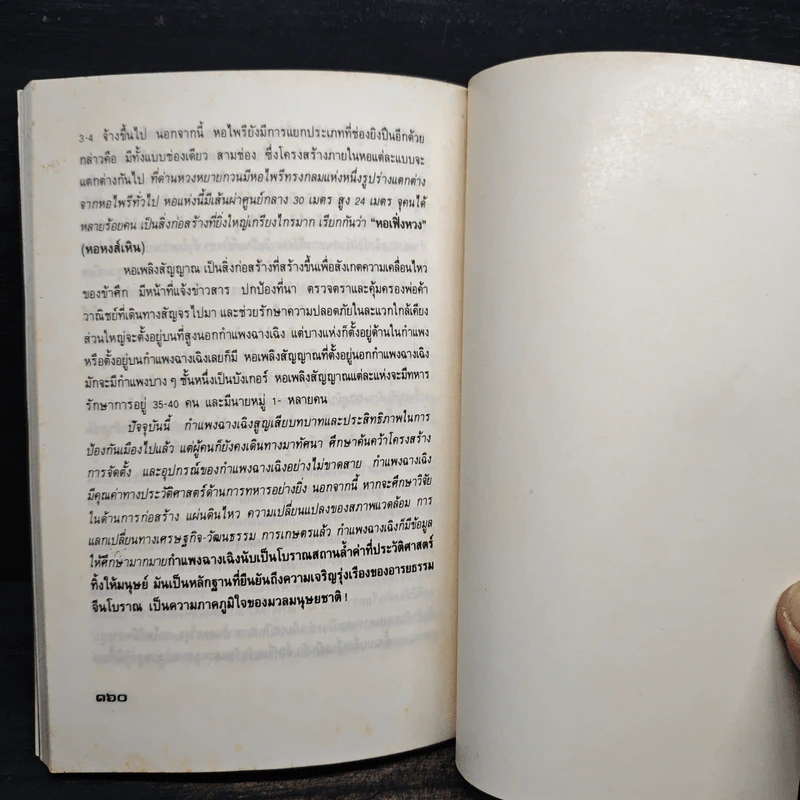 3-4 จ้างขึ้นไป นอกจากนี้ หอไพรียังมีการแยกประเภทที่ช่องยิงปืนอีกด้วย
กล่าวคือ มีทั้งแบบช่องเดียว สามช่อง ซึ่งโครงสร้างภายในหอแต่ละแบบจะ
แตกต่างกันไป ที่ด่านหวงหยายกวนมีหอไพรีทรงกลมแห่งหนึ่งรูปร่างแตกต่าง
จากหอไพรีทั่วไป หอแห่งนี้มีเส้นผ่าศูนย์กลาง 30 เมตร สูง 24 เมตร จุคนได้
หลายร้อยคน เป็นสิ่งก่อสร้างที่ยิ่งใหญ่เกรียงไกรมาก เรียกกันว่า "หอเฟิ่งหวง"
(หอหงส์เหิน)
หอเพลิงสัญญาณ เป็นสิ่งก่อสร้างที่สร้างขึ้นเพื่อสังเกตความเคลื่อนไหว
ของข้าศึก มีหน้าที่แจ้งข่าวสาร ปกป้องที่นา ตรวจตราและคุ้มครองพ่อค้า
วาณิชย์ที่เดินทางสัญจรไปมา และช่วยรักษาความปลอดภัยในละแวกใกล้เคียง
ส่วนใหญ่จะตั้งอยู่บนที่สูงนอกกำแพงฉางเฉิง แต่บางแห่งก็ตั้งอยู่ด้านในกำแพง
หรือตั้งอยู่บนกำแพงฉางเฉิงเลยก็มี หอเพลิงสัญญาณที่ตั้งอยู่นอกกำแพงฉางเฉิง
มักจะมีกำแพงบาง ๆ ชั้นหนึ่งเป็นบังเกอร์ หอเพลิงสัญญาณแต่ละแห่งจะมีทหาร
รักษาการอยู่ 35-40 คน และมีนายหมู่ 1- หลายคน
ปัจจุบันนี้ กำแพงฉางเฉิงสูญเสียบทบาทและประสิทธิภาพในการ
ป้องกันเมืองไปแล้ว แต่ผู้คนก็ยังคงเดินทางมาทัศนา ศึกษาค้นคว้าโครงสร้าง
การจัดตั้ง และอุปกรณ์ของกำแพงฉางเฉิงอย่างไม่ขาดสาย กำแพงฉางเฉิง
มีคุณค่าทางประวัติศาสตร์ด้านการทหารอย่างยิ่ง นอกจากนี้ หากจะศึกษาวิจัย
ในด้านการก่อสร้าง แผ่นดินไหว ความเปลี่ยนแปลงของสภาพแวดล้อม การ
แลกเปลี่ยนทางเศรษฐกิจ-วัฒนธรรม การเกษตรแล้ว กำแพงฉางเฉิงก็มีข้อมูล
ให้ศึกษามากมายกำแพงฉางเฉิงนับเป็นโบราณสถานล้ำค่าที่ประวัติศาสตร์
ทิ้งให้มนุษย์ มันเป็นหลักฐานที่ยืนยันถึงความเจริญรุ่งเรืองของอารยธรรม
จีนโบราณ เป็นความภาคภูมิใจของมวลมนุษยชาติ !
๑๖๐